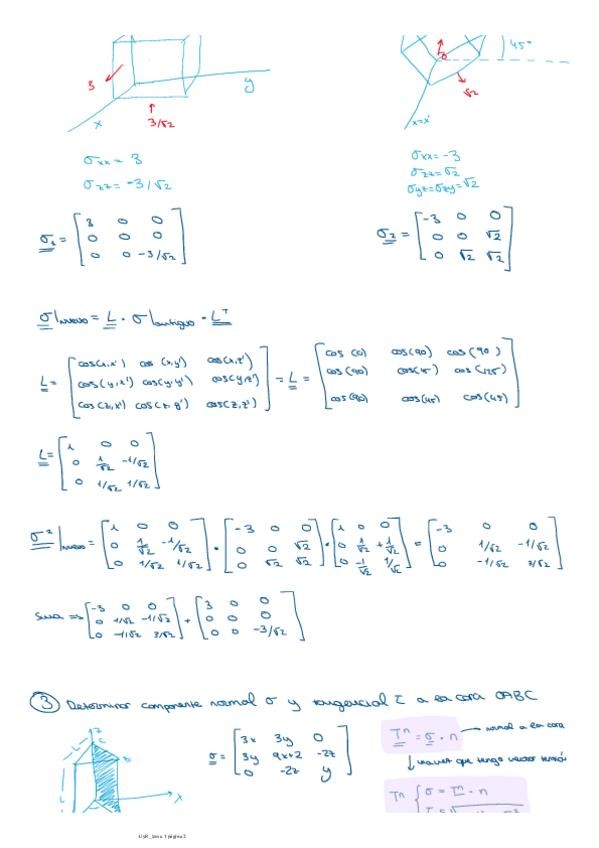 45°
3
y
x
3/√2
√2
x=x'
σxx = 3
σzz = -3/√2
σxx = -3
σzz = √2
σyz = σzy = √2
σ1 = [3 0 0
0 0 0
0 0 -3/√2]
σ2 = [-3 0 0
0 0 √2
0 √2 √2]
σ|nuevo = L · σ|antiguo · L^T
L = [cos(x,x') cos(x,y') cos(x,z')
cos(y,x') cos(y,y') cos(y,z')
cos(z,x') cos(z,y') cos(z,z')] = L = [cos(0) cos(90) cos(90)
cos(90) cos(45) cos(135)
cos(90) cos(45) cos(45)]
L = [1 0 0
0 1/√2 -1/√2
0 1/√2 1/√2]
σ²|nuevo = [1 0 0
0 1/√2 -1/√2
0 1/√2 1/√2] · [-3 0 0
0 0 √2
0 √2 √2] · [1 0 0
0 1/√2 +1/√2
0 -1/√2 1/√2] = [-3 0 0
0 1/√2 -1/√2
0 -1/√2 3/√2]
Suma => [-3 0 0
0 1/√2 -1/√2
0 -1/√2 3/√2] + [3 0 0
0 0 0
0 0 -3/√2]
3 Determinar componente normal σ y tangencial τ a la cara OABC
z
c
B
x
σ = [3x 3y 0
3y 9x+2 -2z
0 -2z y]
T^n = σ · n
normal a la cara
una vez que tengo vector tensión
T^n { σ = T^n · n